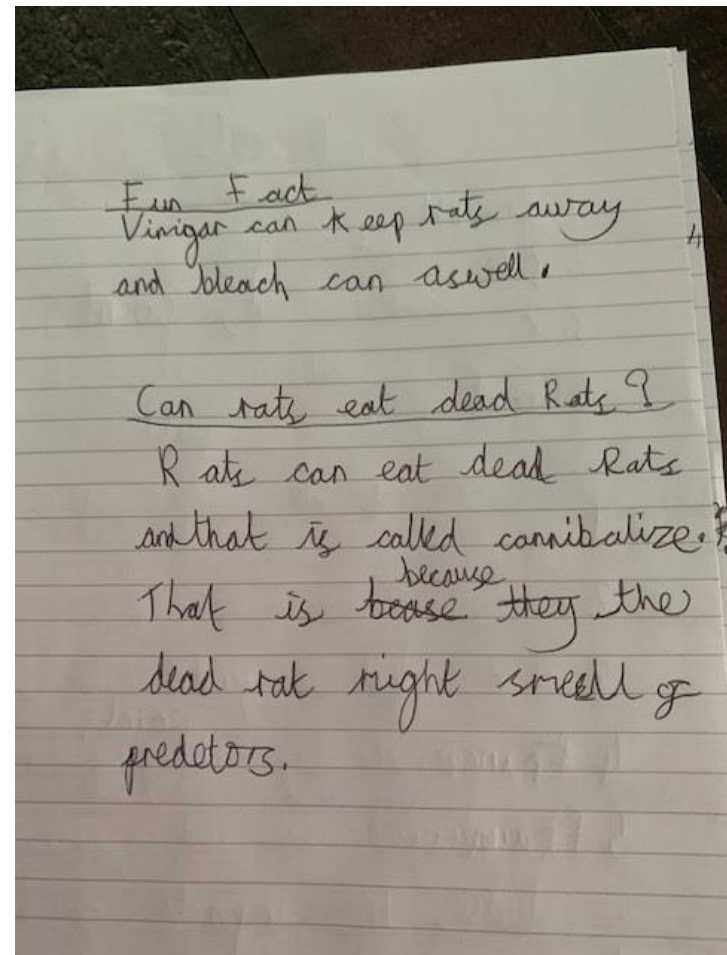 Fun Fact
Vinigar can keep rats away
and bleach can aswell.
Can rats eat dead Rats?
Rats can eat dead Rats
and that is called cannibalize.
because
That is bcause they the
dead rat might smell of
predetors.